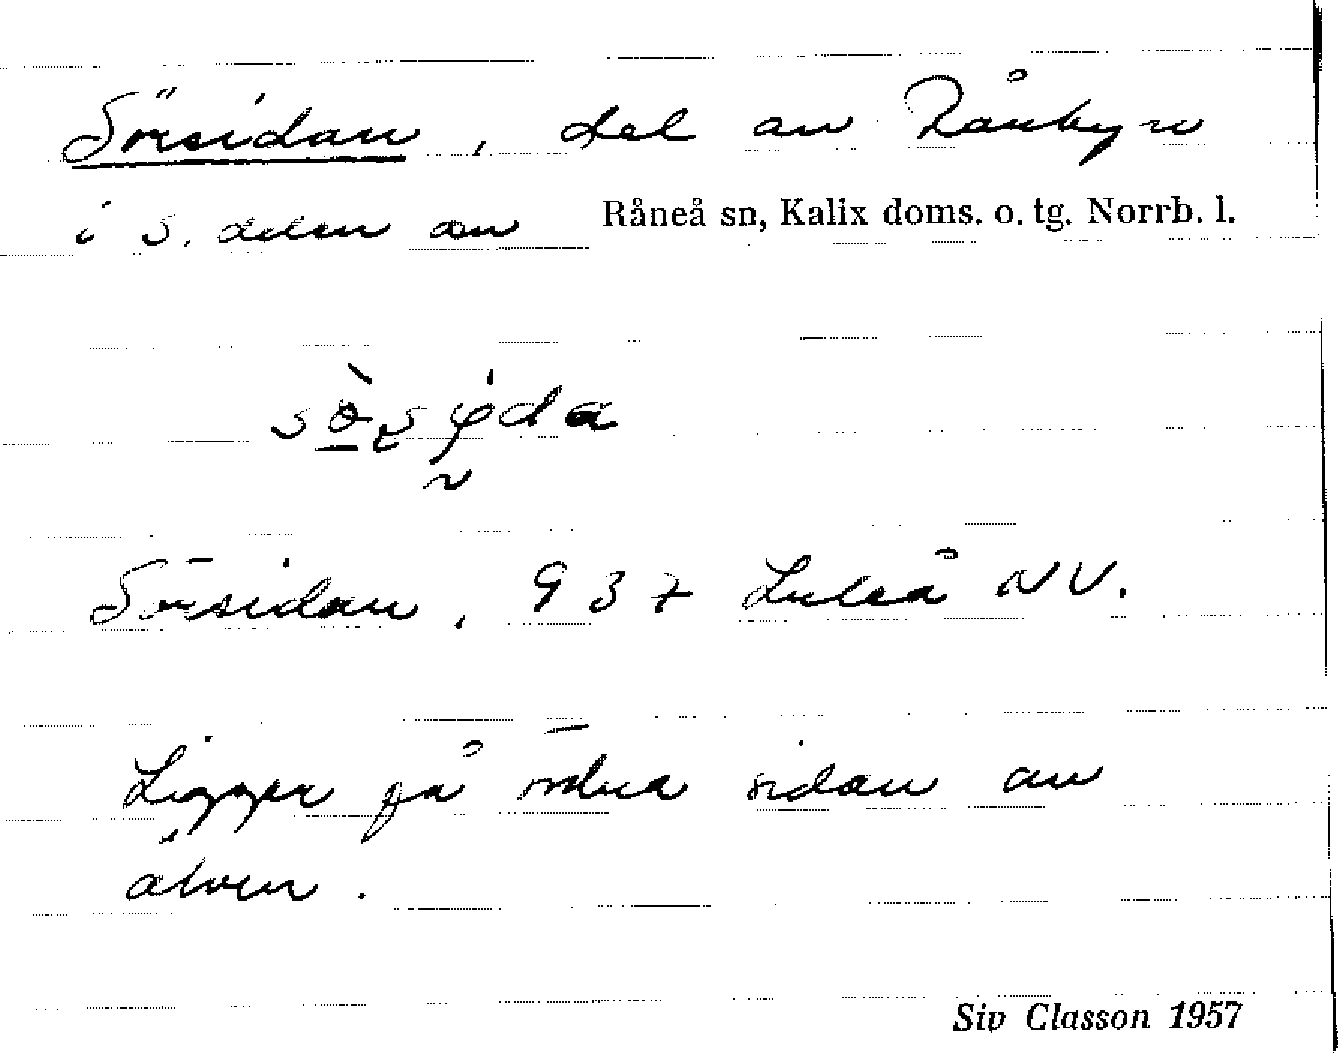 Sörsidan, del av Rånbyn
i S. delen av Råneå sn, Kalix doms. o. tg. Norrb. l.
Sörsidan, 937 Luleå NV.
Ligger på södra sidan av
älven.
Siv Classon 1957